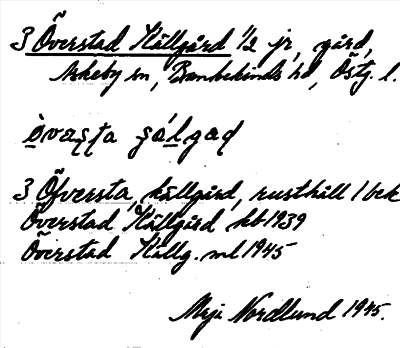 3 Överstad Källgård 1/2 jr, gård,
Askeby sn, Bankekinds hd, Östg. l.
òvaṣṭa ʂá̱lgaḍ
3 Öfversta, källgård, rusthåll 1 bek
Överstad Källgård kb 1939
Överstad Källg. ml 1945
Meji Nordlund 1945.